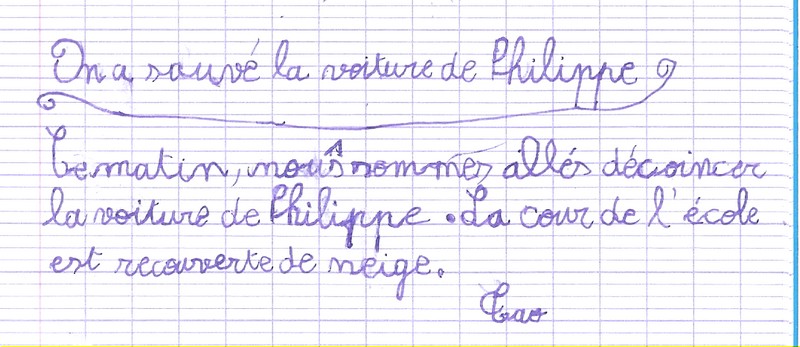 On a sauvé la voiture de Philippe
Ce matin, nous sommes allés décoincer
la voiture de Philippe. La cour de l'école
est recouverte de neige.